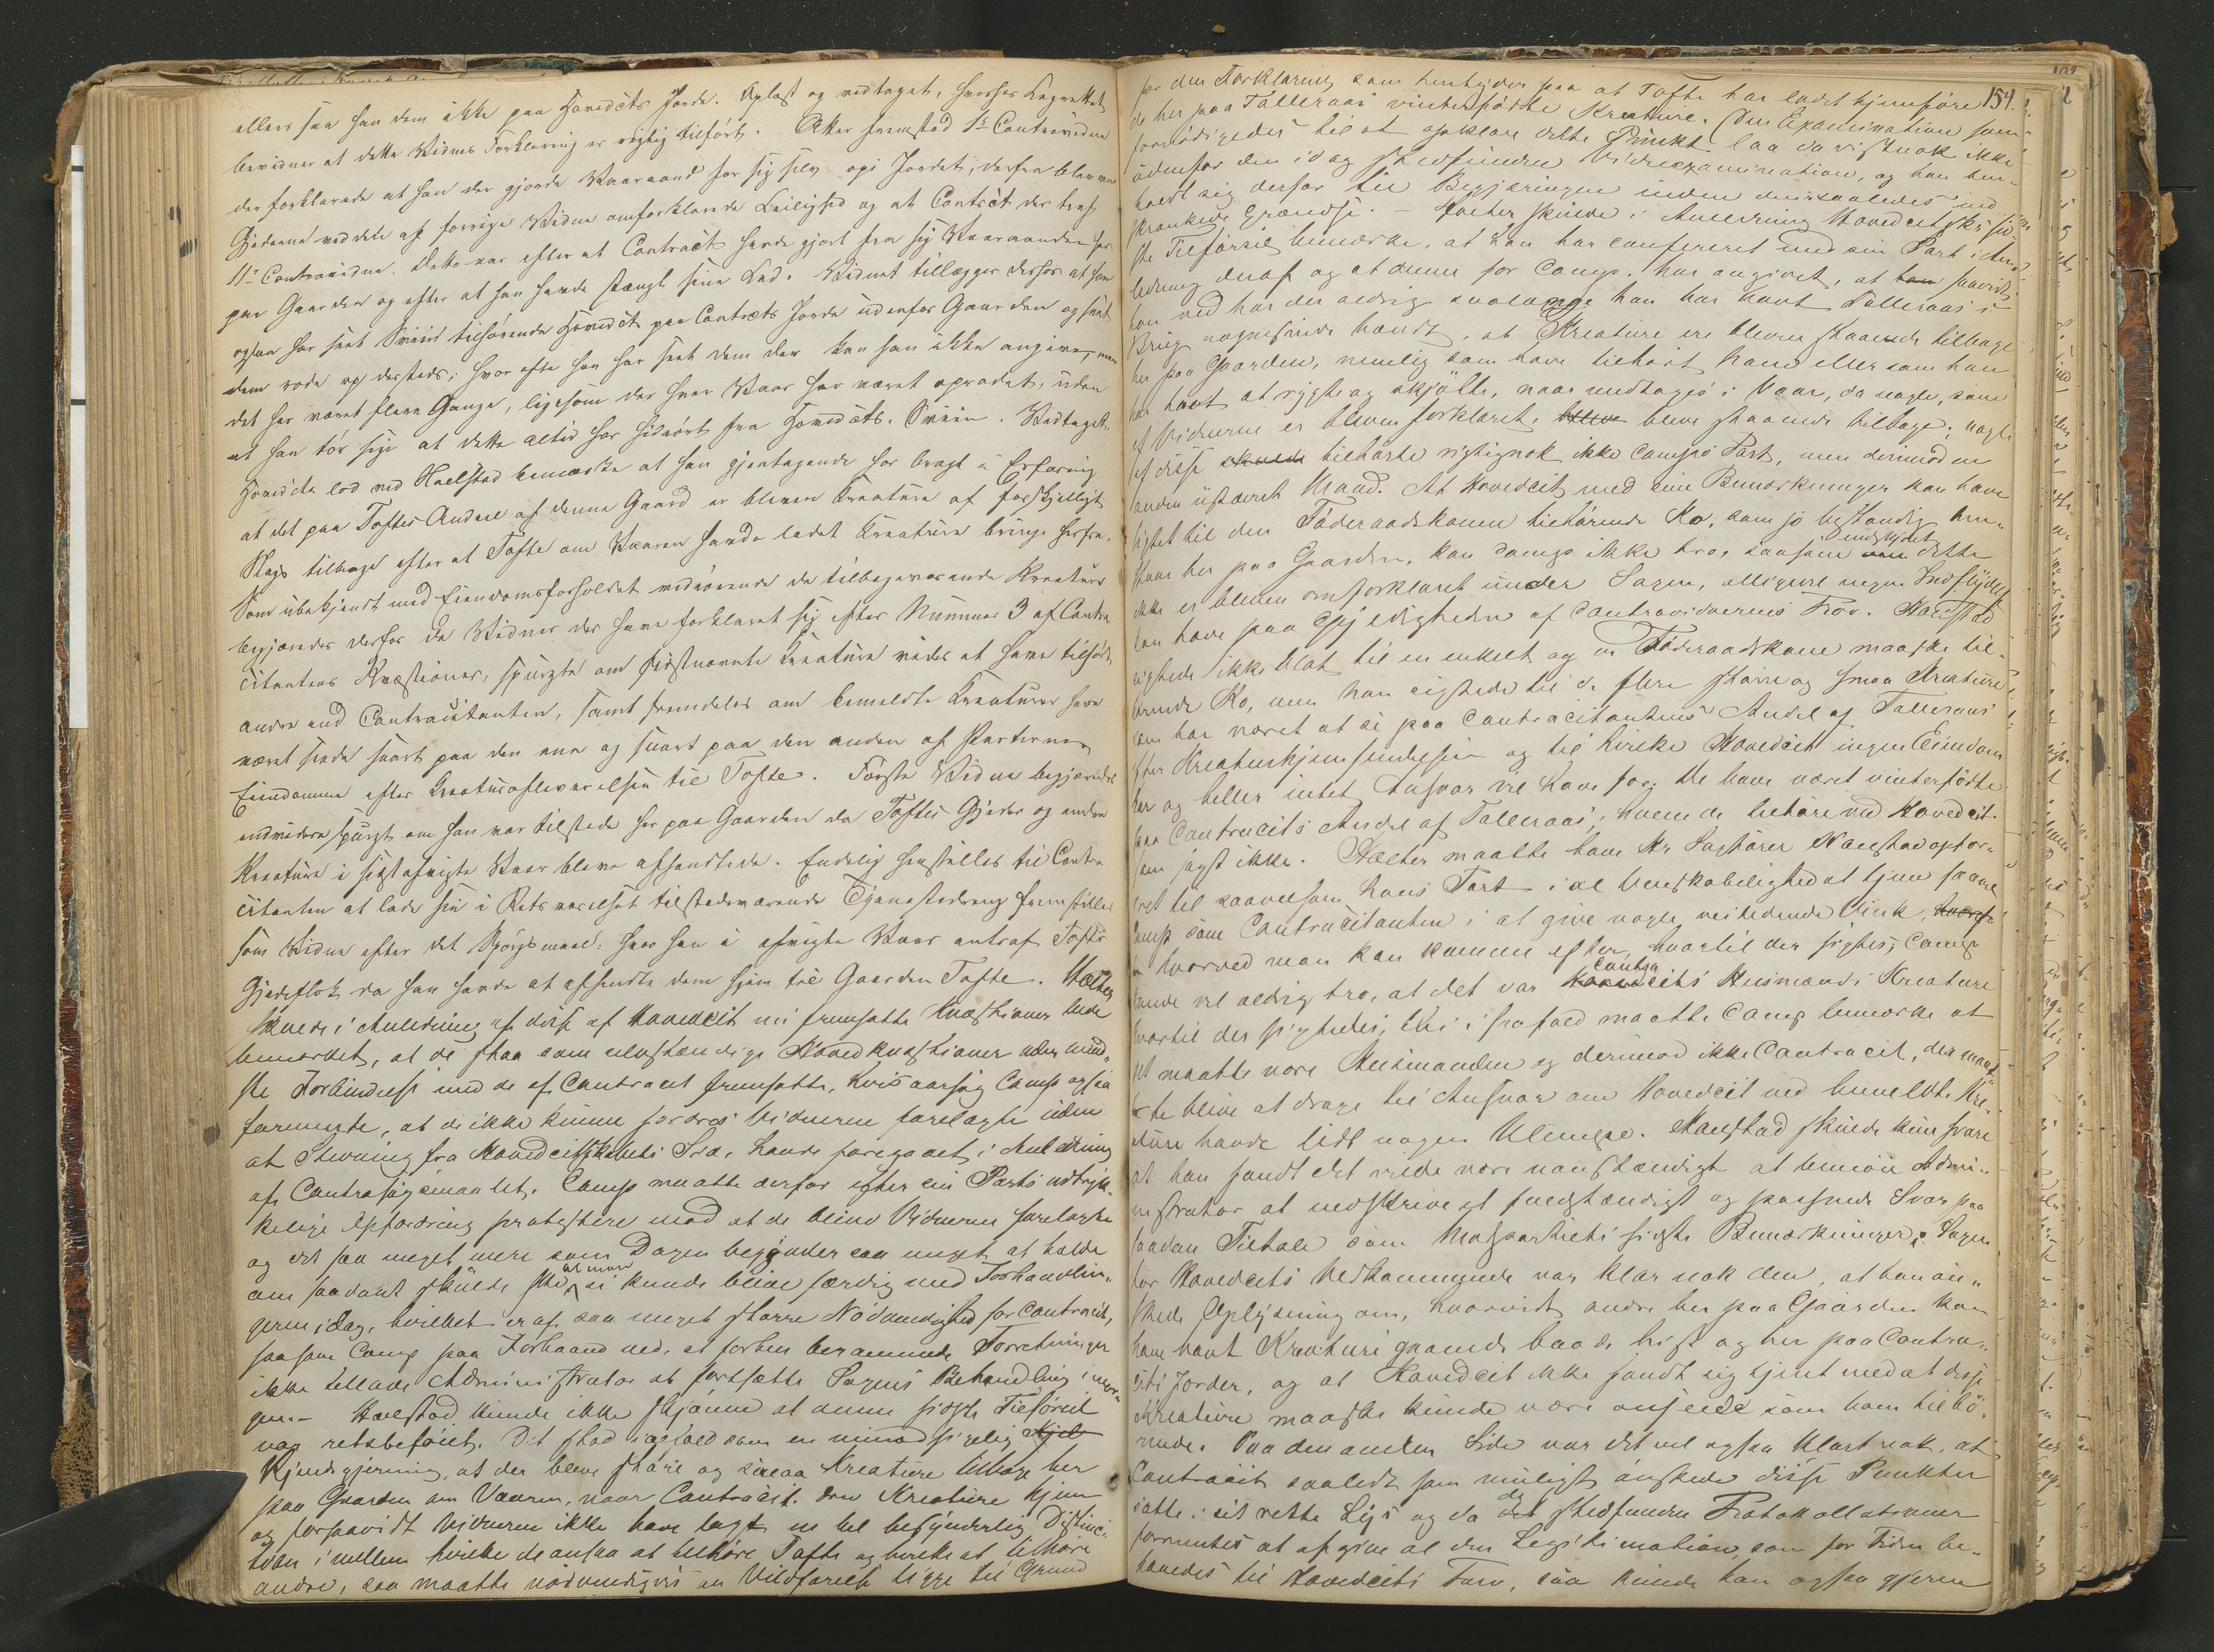 ellers saa han dem ikke paa Hovedcits Jorde. Oplæst og vedtaget, hvorfor Lagrettet
bevidner at dette Vidnes Forklaring er rigtig tilført. Atter fremstod 1ste Contravidne
der forklarede at han der gjorde Vaaraand for sig selv opi Jordet, derfra bleve
Gjederne ved dele af forrige Vidne omforklarede Leilighed og at Contracit der traf
11te Contravidne. Dette var efter at Contracit havde gjort fra sig Vaaraanden her
paa Gaarden og efter at han havde stængt sine Led. Vidnet tillægger derhos at han
ogsaa har seet Sviin tilhørende Hovedcit paa Contracits Jorde udenfor Gaarden og seet
dem rode op dersteds; hvor ofte han har seet dem der kan han ikke angive, men
det har været flere Gange, ligesom der hver Vaar har været oprodet, uden
at han tør sige at dette altid har hidrørt fra Hovedcits Sviin. Vedtaget.
Hovedcit lod ved Haelstad bemærke at han gjentagende har bragt i Erfaring
at det paa Toftes Andeel af denne Gaard er bleven Kreature af forskjelligt
Slags tilbage efter at Tofte om Vaaren havde ladet Kreaturene bringe herfra.
Som ubekjendt med Eiendomsforholdet vedrørende de tilbageværende Kreature
begjæredes derfor de Vidner der have forklaret sig efter Nummer 3 af Contra
citantens Qvæstioner, spurgte om sidstnævnte Kreature vides at have tilhørt
andre end Contracitanten, samt fremdeles om bemeldte Kreature have
været snart paa den ene og snart paa den anden af Parternes
Eiendomme efter Kreaturafleverelsen til Tofte. Første Vidne begjæredes
endvidere spurgt om han var tilstede her paa Gaarden da Toftes Gjeder og andre
Kreature i sidstafvigte Vaar bleve afsendtede. Endelig henstilles til Contra
citanten at lade sin i Retsværelset tilstedeværende Tjenestedreng fremstilles
som Vidne efter det Spørgsmaal: hvor han i afvigte Vaar antraf Toftes
Gjedeflok da han havde at afhente dem hjem til Gaarden Tofte. Hæter
skulde i Anledning af disse af Hovedcit nu fremsatte Qvæstioner have
bemærket, at de staa som selvstændige Hovedqvæstioner uden mind-
ste Forbindelse med de af Contracit fremsatte, hvis aarsag Camp ogsaa
formente, at de ikke kunne fordres Vidnerne forelagte uden
at Stevning fra Hovedcitskabets Side havde foregaaet i Anledning
af Contrasøgsmaalet. Camp maatte derfor efter sin Parts udtryk-
kelige Opfordring protestere mod at de blive Vidnerne forelagte
og det saa meget mere som Dagen begynder saa meget at helde
om saadant skulde ske, at man ei kunde blive færdig med Forhandlin-
gerne idag, hvilket er af saa meget større Nødvendighed for Contracit,
saasom Camp paa Forhaand ved, at forhen berammede Forretninger
ikke tillade Administrator at fortsætte Sagens Behandling i mor-
gen. – Haelstad kunde ikke skjønne at denne sidste Tilførsel
var retsbeføiet. Det stod i ethvert Fald som en uimodsigelig
Kjendsgjerning, at der bleve større og smaa Kreature tilbage her
paa Gaarden om Vaaren, naar Contracit. drev Kreature hjem
og forsaavidt Vidnerne ikke have lagt en hel besynderlig Distinc-
tion imellem hvilke de ansaa at tilhøre Tofte og hvilke at tilhøre
andre, saa maatte nødvendigvis en Vildfarelse ligge til Grund
154.
for den Forklaring som hentyder paa at Tofte har ladet hjemføre
de her paa Talleraas vinterfødte Kreature. Den Examination som
fornødigedes til at opklare dette Punkt laa da vistnok ikke
udenfor den idag stedfundne Vidneexamination, og han hen-
holdt sig derfor til Begjæringen inden dens saaledes ved
skrankede Grændse. – Hæter skulde i Anledning Hovedcitskabs sid-
ste Tilførsel bemærke, at han har confereret med sin Part i An-
ledning deraf og at denne for Camp. har angivet, at saavidt
han ved har der aldrig saalænge han har havt Talleraas i
Brug nogensinde hændt, at Kreature ere blevne staaende tilbage
her paa Gaarden, nemlig som have tilhørt ham eller som han
har havt at røgte og skjøtte, naar undtages i Vaar, da nogle, som
af Vidnerne er bleven forklaret, bleve staaende tilbage; nogle
af disse tilhørte rigtignok ikke Camps Part, men derimod en
anden Mand. At Hovedcit med sine Bemærkninger kan have
sigtet til den Føderaadskonen tilhørende Ko, som jo bestandig hen-
staar her paa Gaarden, kan Camp ikke tro, saasom endskjønt dette
ikke er bleven omforklaret under Sagen, alligevel ingen Indflydelse
kan have paa Gyldigheden af Contravidnernes Prov. Haelstad
sigtede ikke blot til en enkelt og en Føderaadskone maaske til-
hørende Ko, men han sigtede til de flere større og smaa Kreature
som har været at se paa Contracitantens Andel af Talleraas
efter Kreaturhjemsendelsen og til hvilke Hovedcit ingen Eiendom
har og heller intet Ansvar vil have for. De have været vinterfødte
paa Contracits Andel af Talleraas; hvem de tilhøre ved Hovedcit.
som sagt ikke. Hæter maatte have Hr Sagfører Haelstad opfor-
dret til saavelsom hans Part i al Venskabelighed at tjene saavel
Camp som Contracitanten i at give nogle veiledende Vink,
hvorved man kan komme efter, hvortil der sigtes; Camp
kunde vel aldrig tro, at det var Contracits Husmands Kreature
hvortil der sigtedes, thi i saafald maatte Camp bemærke at
det maatte være Husmanden og derimod ikke Contracit, der maat-
te blive at drage til Ansvar om Hovedcit ved bemeldte Kre-
ature havde lidt nogen Ulempe. Haelstad skulde kun svare
at han fandt det vilde være uanstændigt at bemøie Admi-
nistrator at nedskrive et fuldstændigt og passende Svar paa
saadan Tiltale som Modpartiets sidste Bemærkninger. Sagen
for Hovedcits Vedkommende var klar nok den, at han øn-
skede Oplysning om, hvorvidt andre her paa Gaarden kan
have havt Kreature gaaende baade hist og her paa Contra-
cits Jorder, og at Hovedcit ikke fandt sig tjent med at disse
Kreature maaske kunde være anseede som ham tilhø-
rende. Paa den anden Side var det vel ogsaa klart nok, at
Contracit saaledt som muligt ønskede disse Punkter
satte i sit rette Lys og da de stedfundne Protokollationer
formentes at afgive al den Legitimation, som for Tiden be-
høvedes til Hovedcits Tarv, saa kunde han ogsaa gjerne